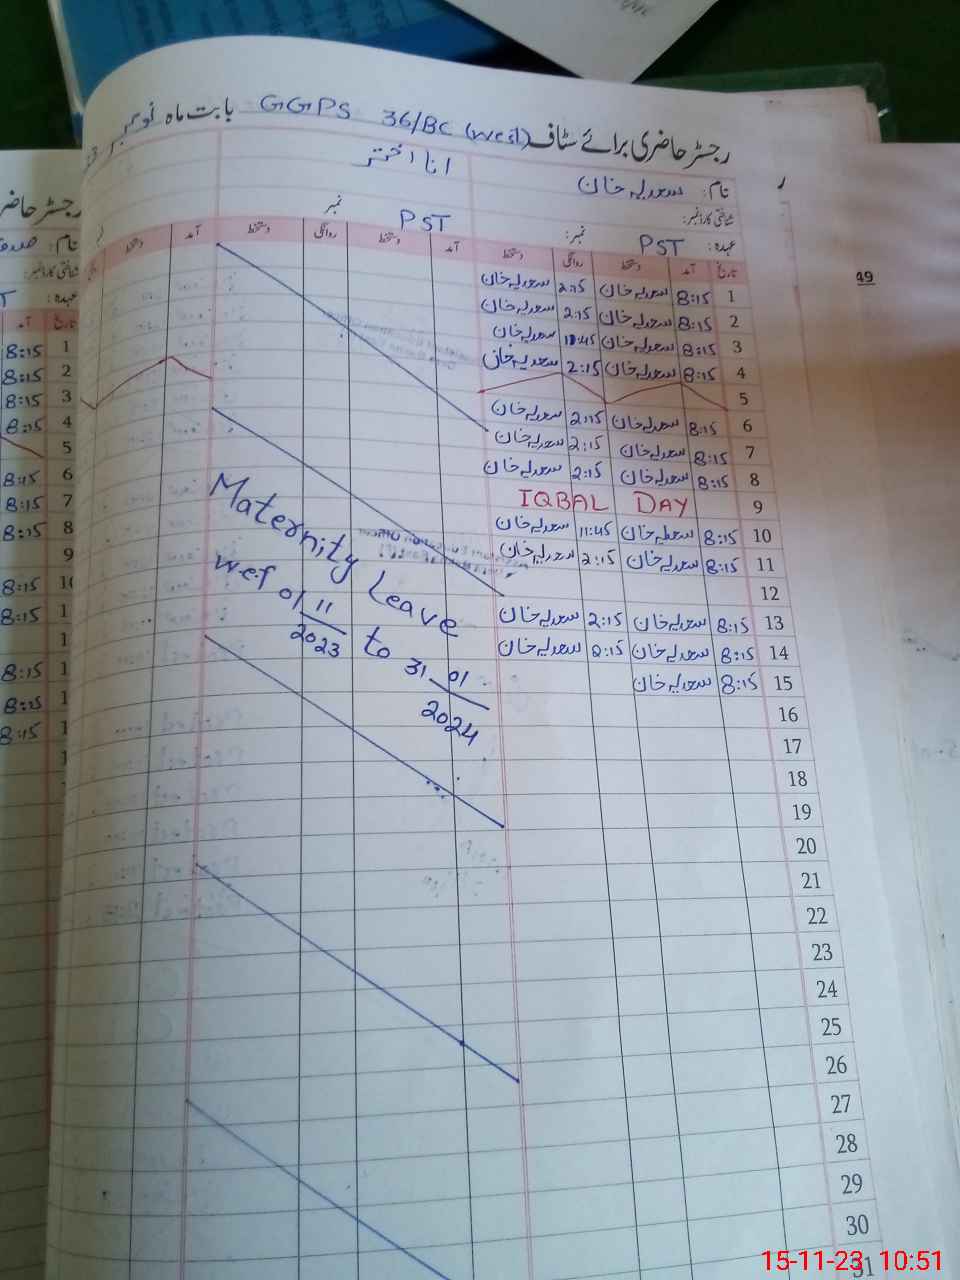 رجسٹر حاضری برائے سٹاف GGPS 36/BC (West) بابت ماہ نومبر
نام: سعدیہ خان
شناختی کارڈ نمبر:
عہدہ: PST نمبر:
PST نمبر
تاریخ آمد دستخط روانگی دستخط آمد دستخط روانگی دستخط آمد دستخط
1 8:15 سعدیہ خان 2:15 سعدیہ خان
2 8:15 سعدیہ خان 2:15 سعدیہ خان
3 8:15 سعدیہ خان 11:45 سعدیہ خان
4 8:15 سعدیہ خان 2:15 سعدیہ خان
5
6 8:15 سعدیہ خان 2:15 سعدیہ خان
7 8:15 سعدیہ خان 2:15 سعدیہ خان
8 8:15 سعدیہ خان 2:15 سعدیہ خان
9 IQBAL DAY
10 8:15 سعدیہ خان 11:45 سعدیہ خان
11 8:15 سعدیہ خان 2:15 سعدیہ خان
12
13 8:15 سعدیہ خان 2:15 سعدیہ خان
14 8:15 سعدیہ خان 2:15 سعدیہ خان
15 8:15 سعدیہ خان
16
17
18
19
20
21
22
23
24
25
26
27
28
29
30
31
Maternity Leave
wef 01 11 2023 to 31 01 2024
رجسٹر حاضر
نام:
شناختی کارڈ نمبر:
عہدہ:
تاریخ آمد
1 8:15
2 8:15
3 8:15
4 8:15
5
6 8:15
7 8:15
8 8:15
9
8:15
8:15
8:15
8:15
8:15
49
15-11-23 10:51